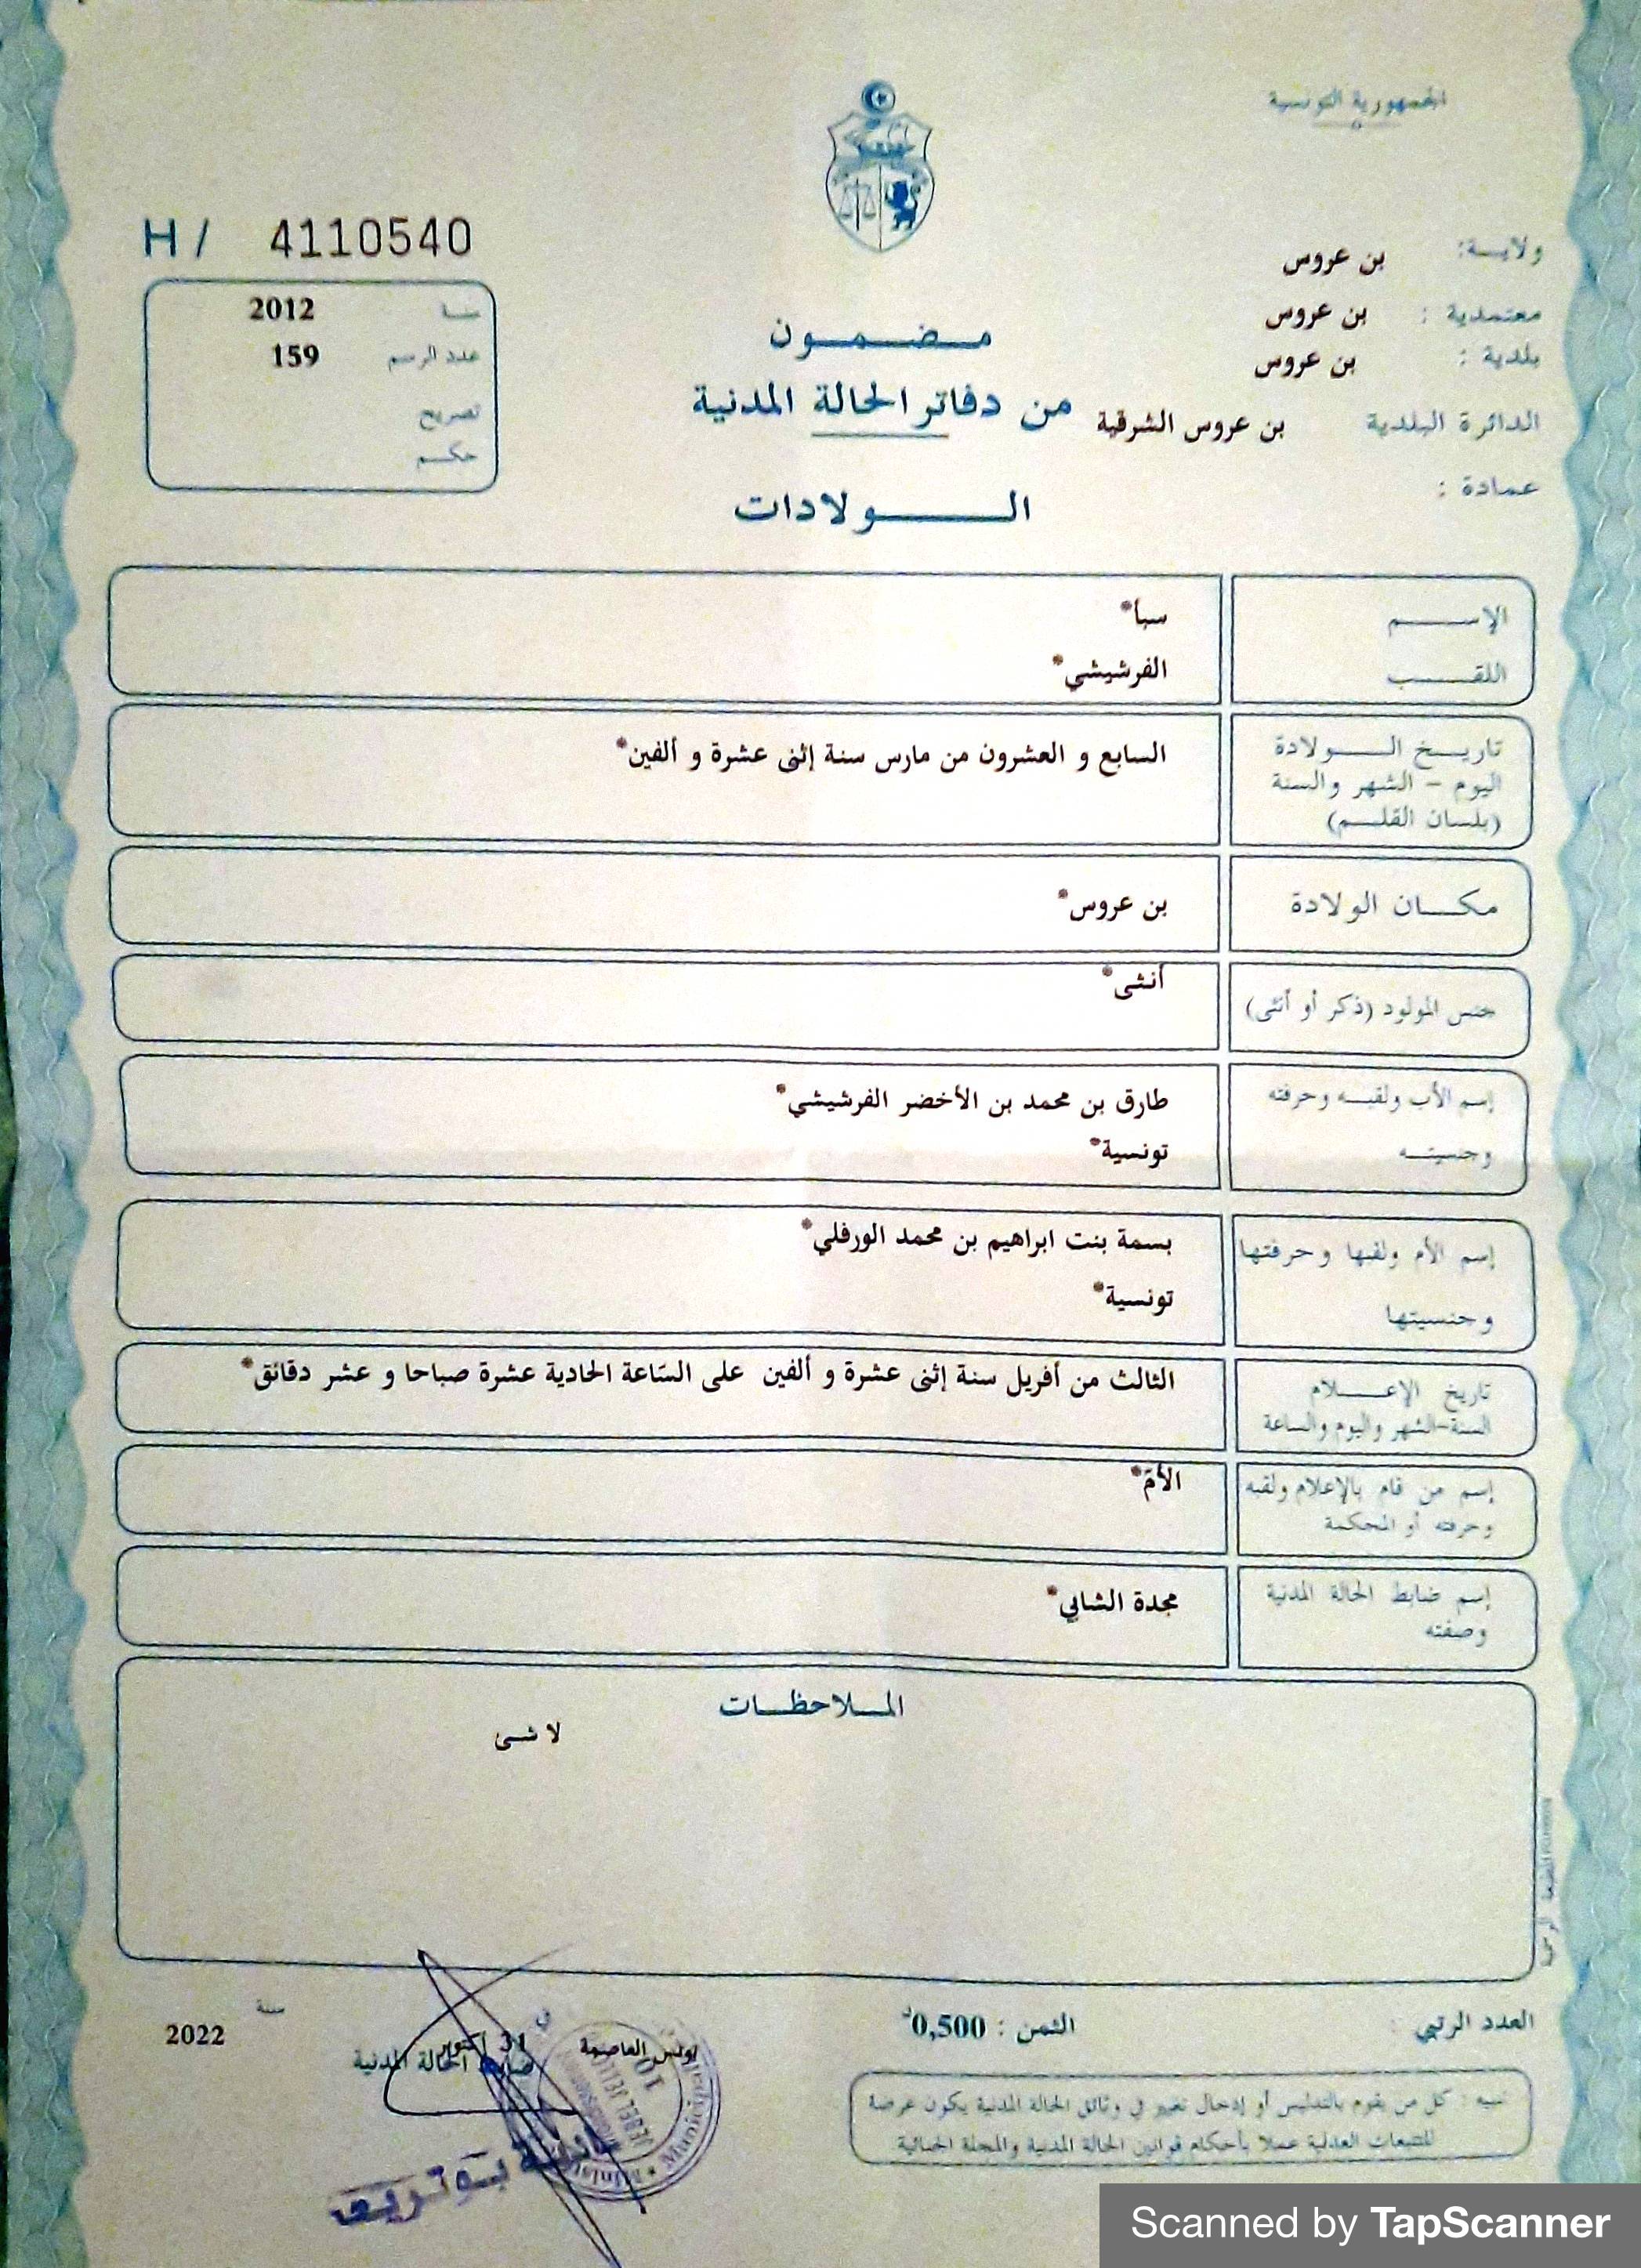 الجمهورية التونسية
ولايـــة: بن عروس
معتمدية : بن عروس
بلدية : بن عروس
الدائرة البلدية بن عروس الشرقية
عمادة :
H / 4110540
سنـة 2012
عدد الرسم 159
تصريح
حكـم
مـضـمـون
من دفاتر الحالة المدنية
الـــولادات
الإســـم سبأ*
اللقـــب الفرشيشي*
تاريـخ الـــولادة
اليوم – الشهر والسنة
(بلسان القلـم)
السابع و العشرون من مارس سنة إثنى عشرة و ألفين*
مكـــان الولادة بن عروس*
جنس المولود (ذكر أو أنثى) أنثى*
إسم الأب ولقبـه وحرفته طارق بن محمد بن الأخضر الفرشيشي*
وجنسيتـه تونسية*
إسم الأم ولقبها وحرفتها بسمة بنت ابراهيم بن محمد الورفلي*
وجنسيتها تونسية*
تاريخ الإعـــلام
السنة-الشهر واليوم والساعة
الثالث من أفريل سنة إثنى عشرة و ألفين على السّاعة الحادية عشرة صباحا و عشر دقائق*
إسم من قام بالإعلام ولقبه
وحرفته أو المحكمة
الأمّ*
إسم ضابط الحالة المدنية
وصفته
مجدة الشابي*
المـلاحظـات
لا شىء
العدد الرتبي :
الثمن : 0,500د
تونس العاصمة في 31 أكتوبر سنة 2022
ضابط الحالة المدنية
تنبيه : كل من يقوم بالتدليس أو إدخال تغيير في وثائق الحالة المدنية يكون عرضة
للتتبعات العدلية عملا بأحكام قوانين الحالة المدنية والمجلة الجنائية
Scanned by TapScanner